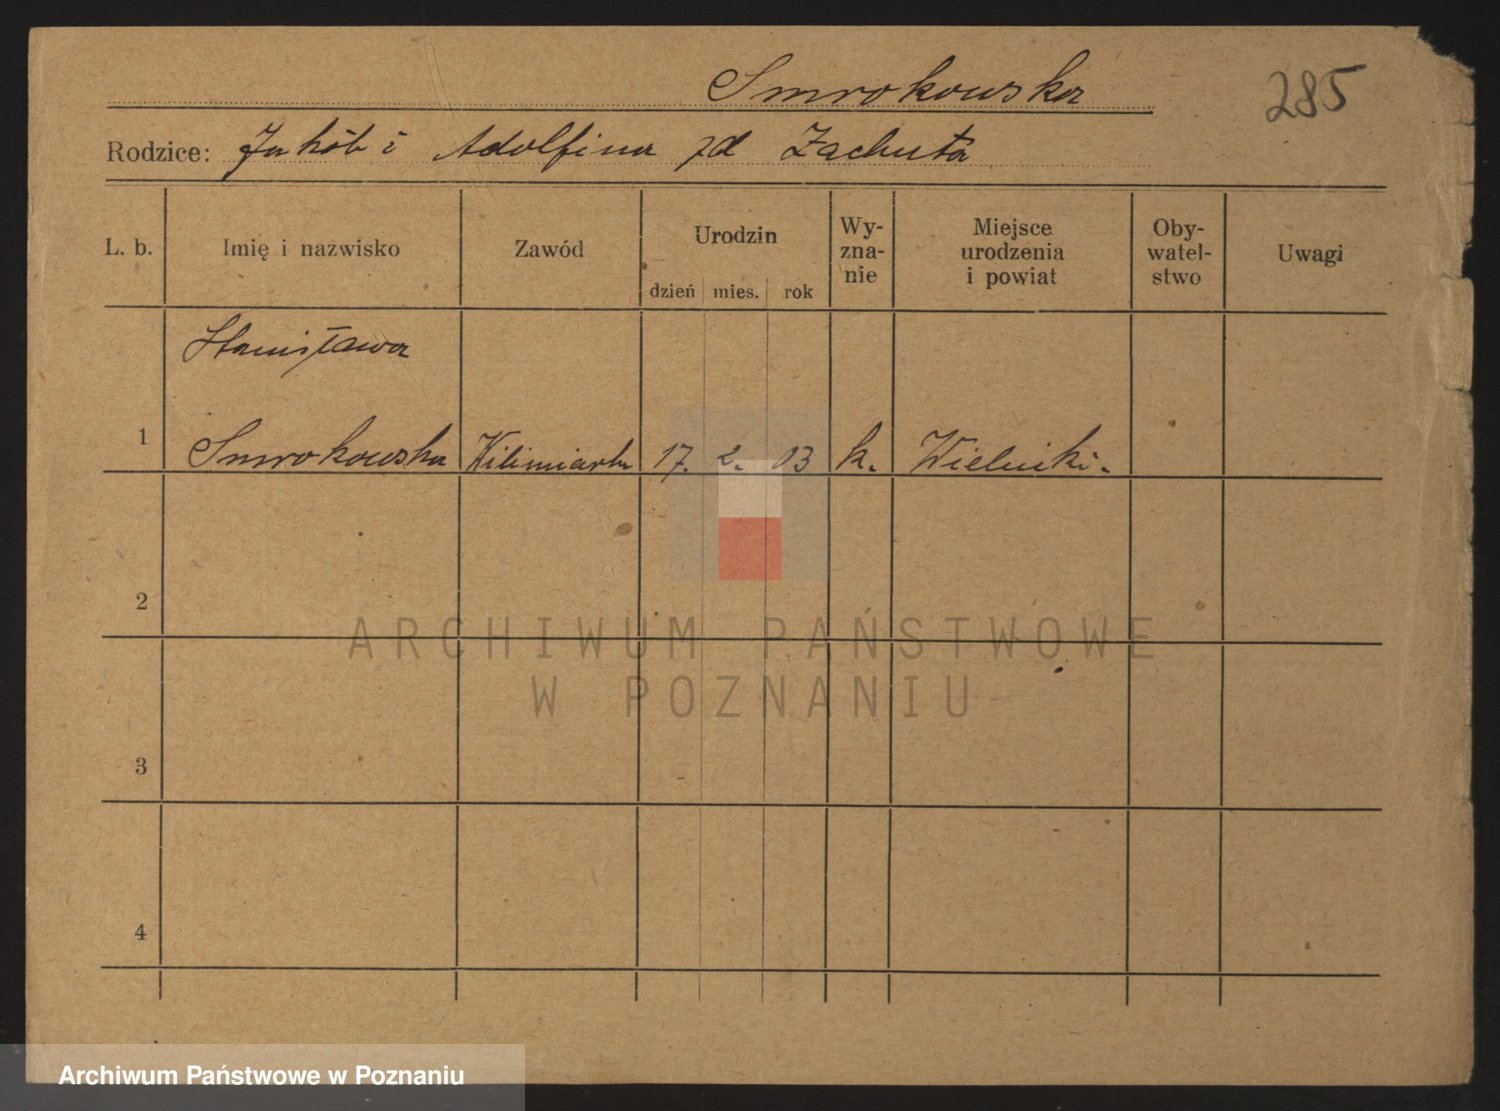 Smrokowska
285
Rodzice: Jakób i Adolfina zd Zachuta
L. b. Imię i nazwisko Zawód Urodzin Wy-zna-nie Miejsce urodzenia i powiat Oby-watel-stwo Uwagi
dzień mies. rok
Stanisława
1 Smrokowska Kilimiarka 17. 2. 03 k. Wielniki.
2
ARCHIWUM PAŃSTWOWE
W POZNANIU
3
4
Archiwum Państwowe w Poznaniu